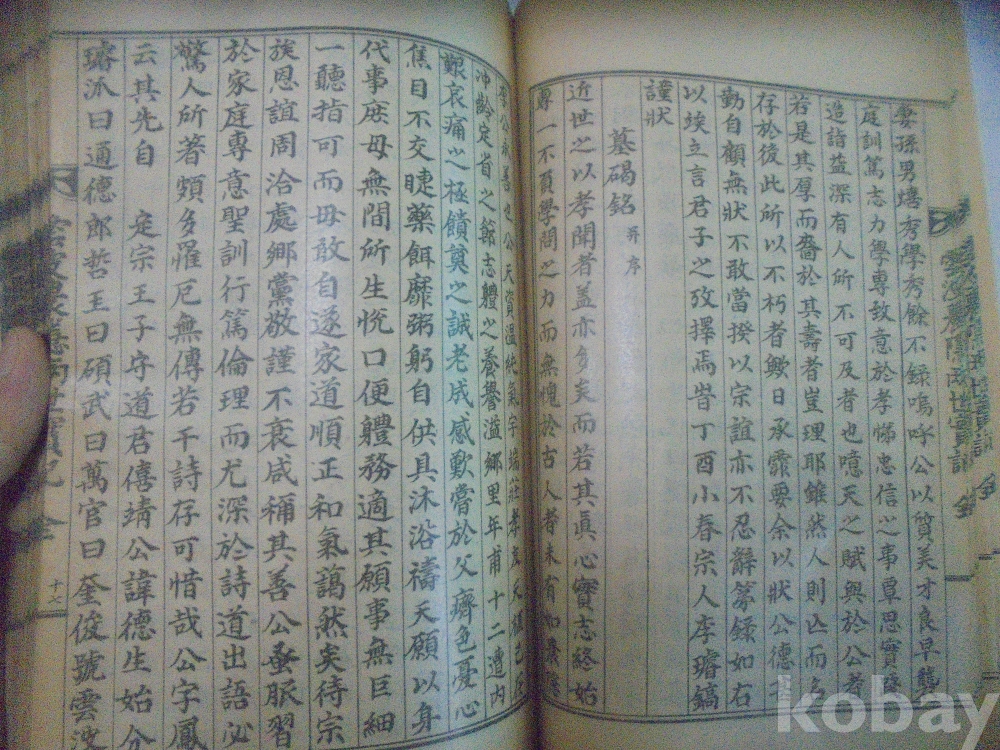 妻孫男 秀學秀餘不錄嗚呼公以質美才良早
庭訓篤志力學專致意於孝悌忠信之事覃思實
造詣益深有人所不可及者也噫天之賦與於公者
若是其厚而嗇於其壽者豈理耶雖然人則亡而名
存於後此所以不朽者歟日承 要余以狀公德
勤自顧無狀不敢當揆以宗誼亦不忍辭纂錄如右
以埃立言君子之攷擇焉旹丁酉小春宗人李璿鎬
謹狀
墓碣銘 并序
近世之以孝聞者盖亦多矣而若其眞心實志終始
專一不 學問之力而無愧於古人者未有如
李公 也公天資溫純氣宇端莊孝
冲齡定省之節志軆之養譽溢鄕里年甫十二遭內
艱哀痛之極饋奠之誠老成感歎嘗於父 色憂心
焦目不交睫藥餌靡粥躬自供具沐浴禱天願以身
代事庶母無間所生悅口便軆務適其願事無巨細
一聽指可而毋敢自遂家道順正和氣藹然矣待宗
族恩誼周洽處鄕黨敬謹不衰咸稱其善公蚤脈習
於家庭專意聖訓行篤倫理而尤深於詩道出語必
驚人所著頗多罹厄無傳若干詩存可惜哉公字鳳
云其先自 定宗王子守道君僖靖公諱德生始分
璿派曰通德郎哲王曰碩武曰萬官曰奎俊號雲波
十七
kobay